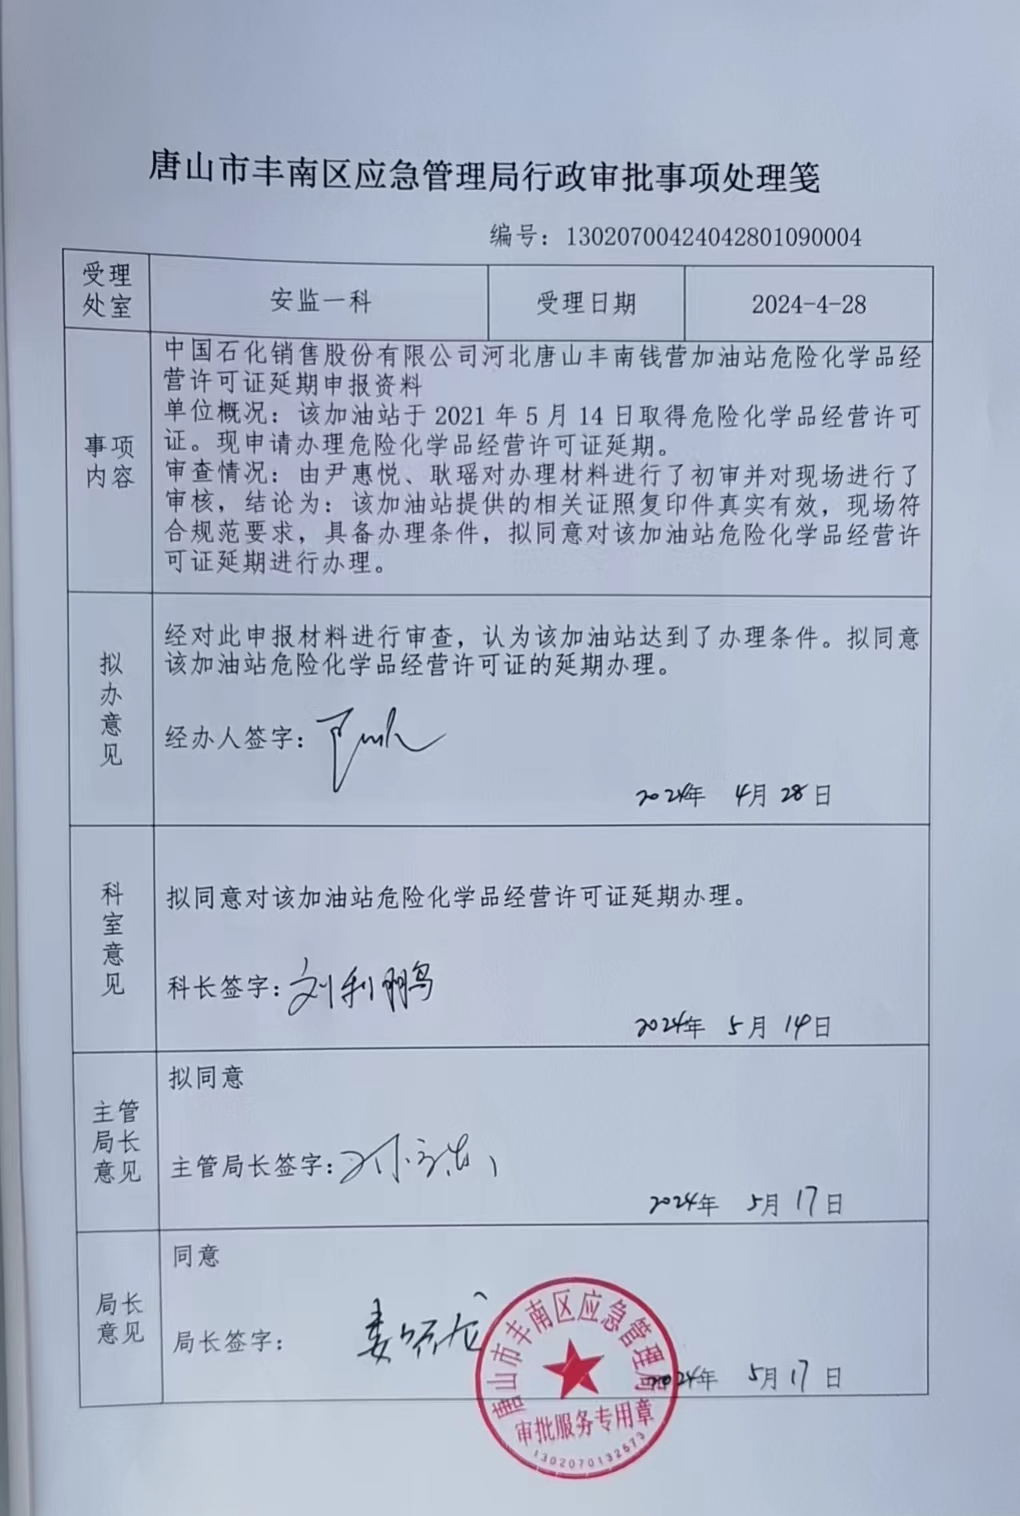 唐山市丰南区应急管理局行政审批事项处理笺
编号：13020700424042801090004
受理
处室
安监一科
受理日期
2024-4-28
事项
内容
中国石化销售股份有限公司河北唐山丰南钱营加油站危险化学品经
营许可证延期申报资料
单位概况：该加油站于 2021 年 5 月 14 日取得危险化学品经营许可
证。现申请办理危险化学品经营许可证延期。
审查情况：由尹惠悦、耿瑶对办理材料进行了初审并对现场进行了
审核，结论为：该加油站提供的相关证照复印件真实有效，现场符
合规范要求，具备办理条件，拟同意对该加油站危险化学品经营许
可证延期进行办理。
拟
办
意
见
经对此申报材料进行审查，认为该加油站达到了办理条件。拟同意
该加油站危险化学品经营许可证的延期办理。
经办人签字：
2024年 4月 28日
科
室
意
见
拟同意对该加油站危险化学品经营许可证延期办理。
科长签字：刘利鹏
2024年 5月 14日
主管
局长
意见
拟同意
主管局长签字：
2024年 5月 17日
局长
意见
同意
局长签字：
2024年 5月 17日
唐山市丰南区应急管理局
审批服务专用章
1302070132673